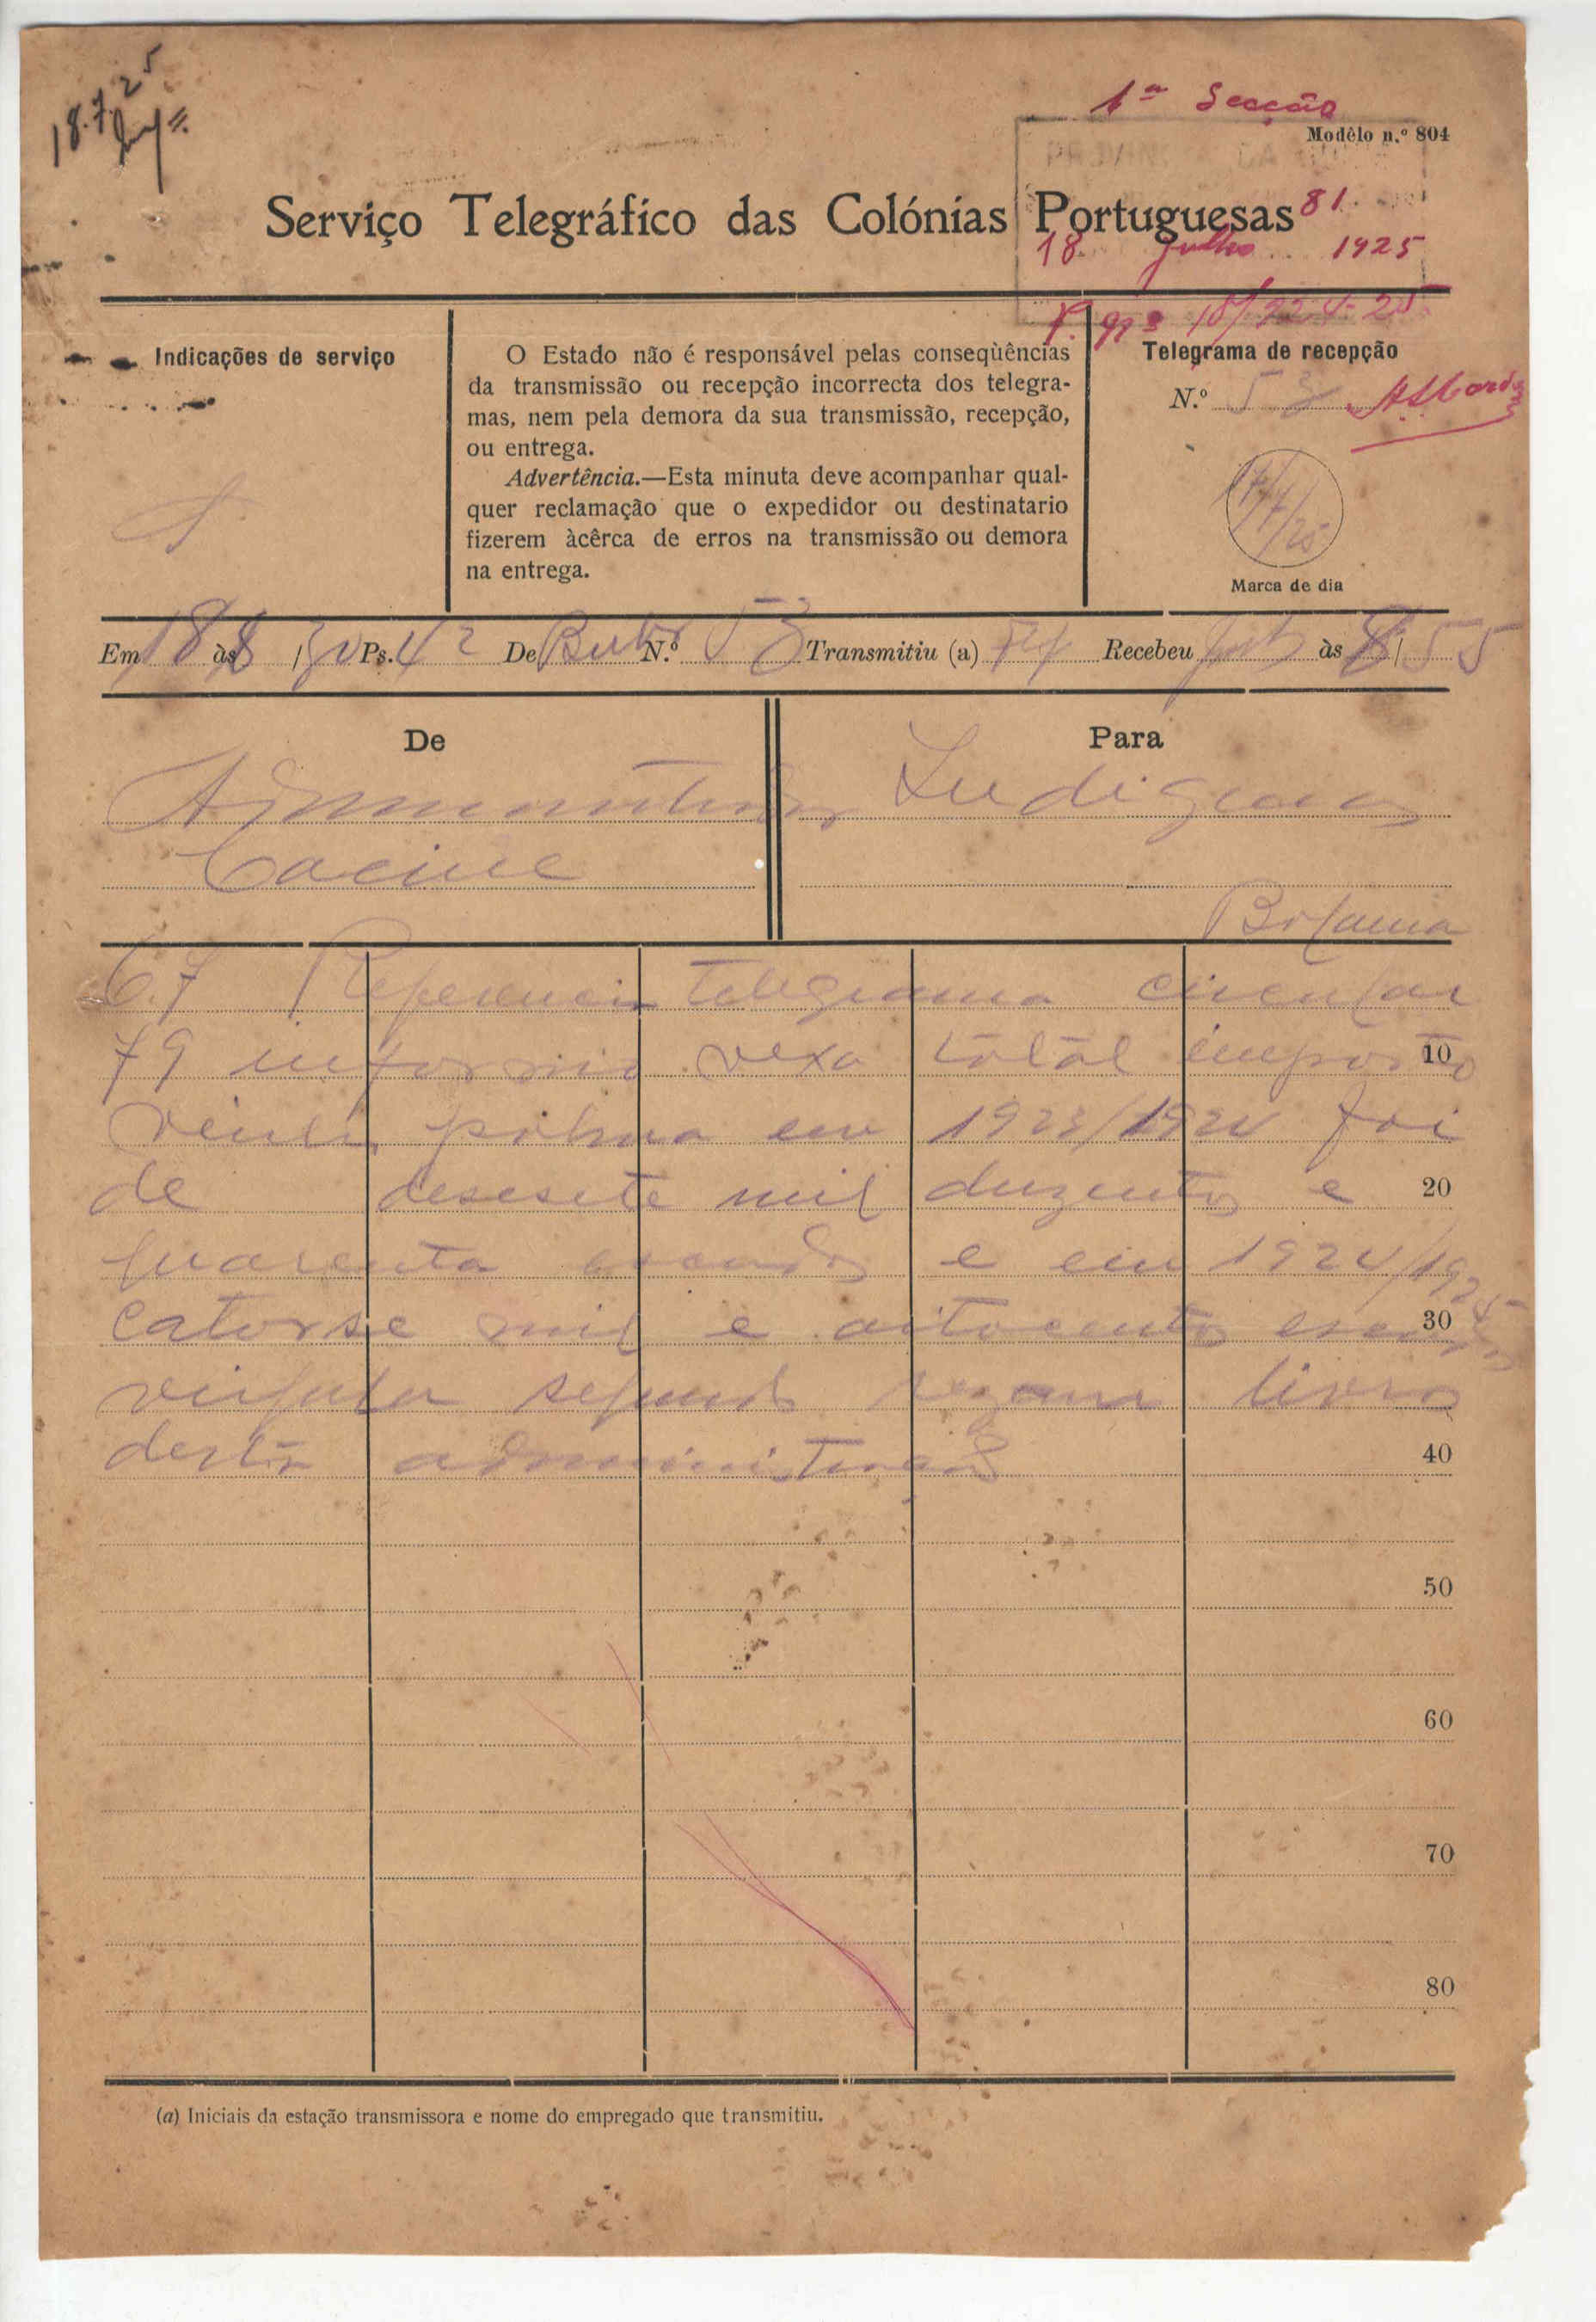 18.7.25
1ª Secção
Modêlo n.º 804
Serviço Telegráfico das Colónias Portuguesas
81
18 Julho 1925
Indicações de serviço
O Estado não é responsável pelas conseqüências
da transmissão ou recepção incorrecta dos telegra-
mas, nem pela demora da sua transmissão, recepção,
ou entrega.
Advertência.—Esta minuta deve acompanhar qual-
quer reclamação que o expedidor ou destinatario
fizerem àcêrca de erros na transmissão ou demora
na entrega.
Telegrama de recepção
N.º 53
17/7/25
Marca de dia
Em 18 às 8 / 30 Ps. 42 De N.º 53 Transmitiu (a) Recebeu às 8 / 55
De
Para
Administrador
Indigenas
Cacine
Bolama
67 Referencia telegrama circular
79 informo vexa total imposto 10
em 1923/1924 foi
de desesete mil duzentos e 20
quarenta escudos e em 1924/1925
catorse mil e oitocentos escudos 30
virgula segundo livros
desta administração 40
50
60
70
80
(a) Iniciais da estação transmissora e nome do empregado que transmitiu.